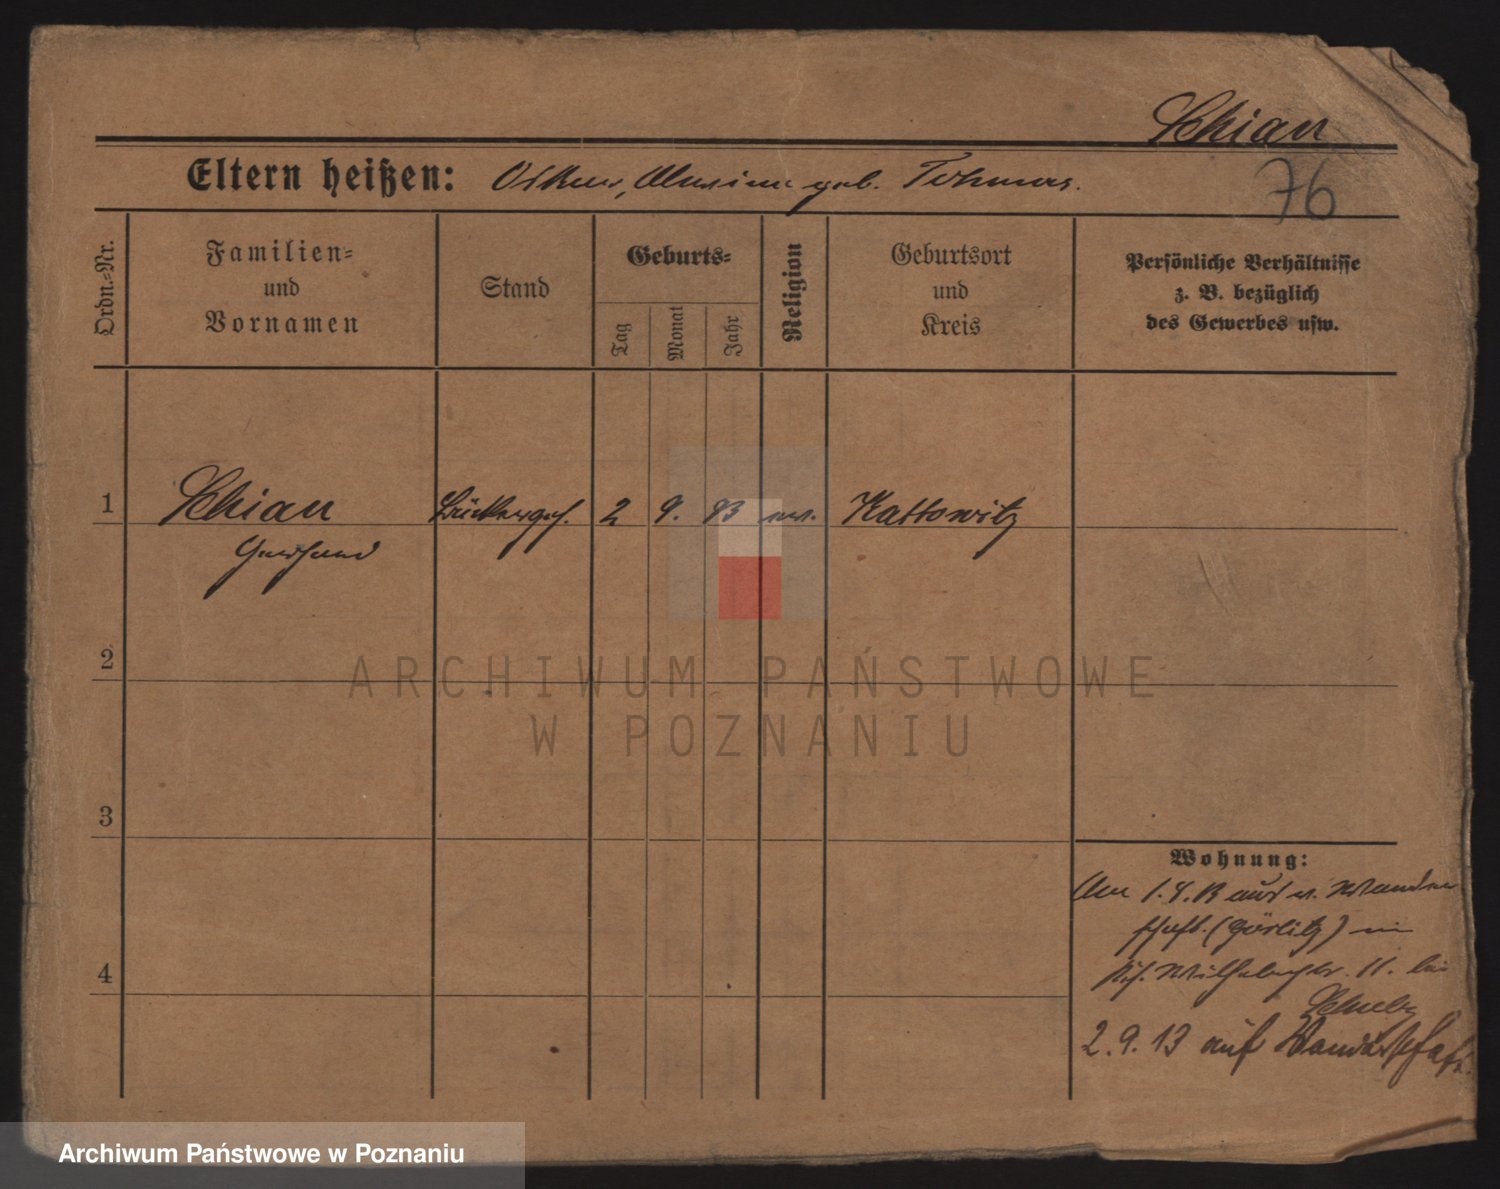 Schian
76
Eltern heißen: Oskar, geb.
Ordn.-Nr.
Familien-
und
Vornamen
Stand
Geburts-
Tag
Monat
Jahr
Religion
Geburtsort
und
Kreis
Persönliche Verhältnisse
z. B. bezüglich
des Gewerbes usw.
1 Schian 2 9. 93 ev. Kattowitz
Gerhard
2
3
4
Wohnung:
Am 1.8.13 auf v. Wander
schaft. (Görlitz) in
11. bei
2.9.13 auf Wanderschaft.
ARCHIWUM PAŃSTWOWE
W POZNANIU
Archiwum Państwowe w Poznaniu